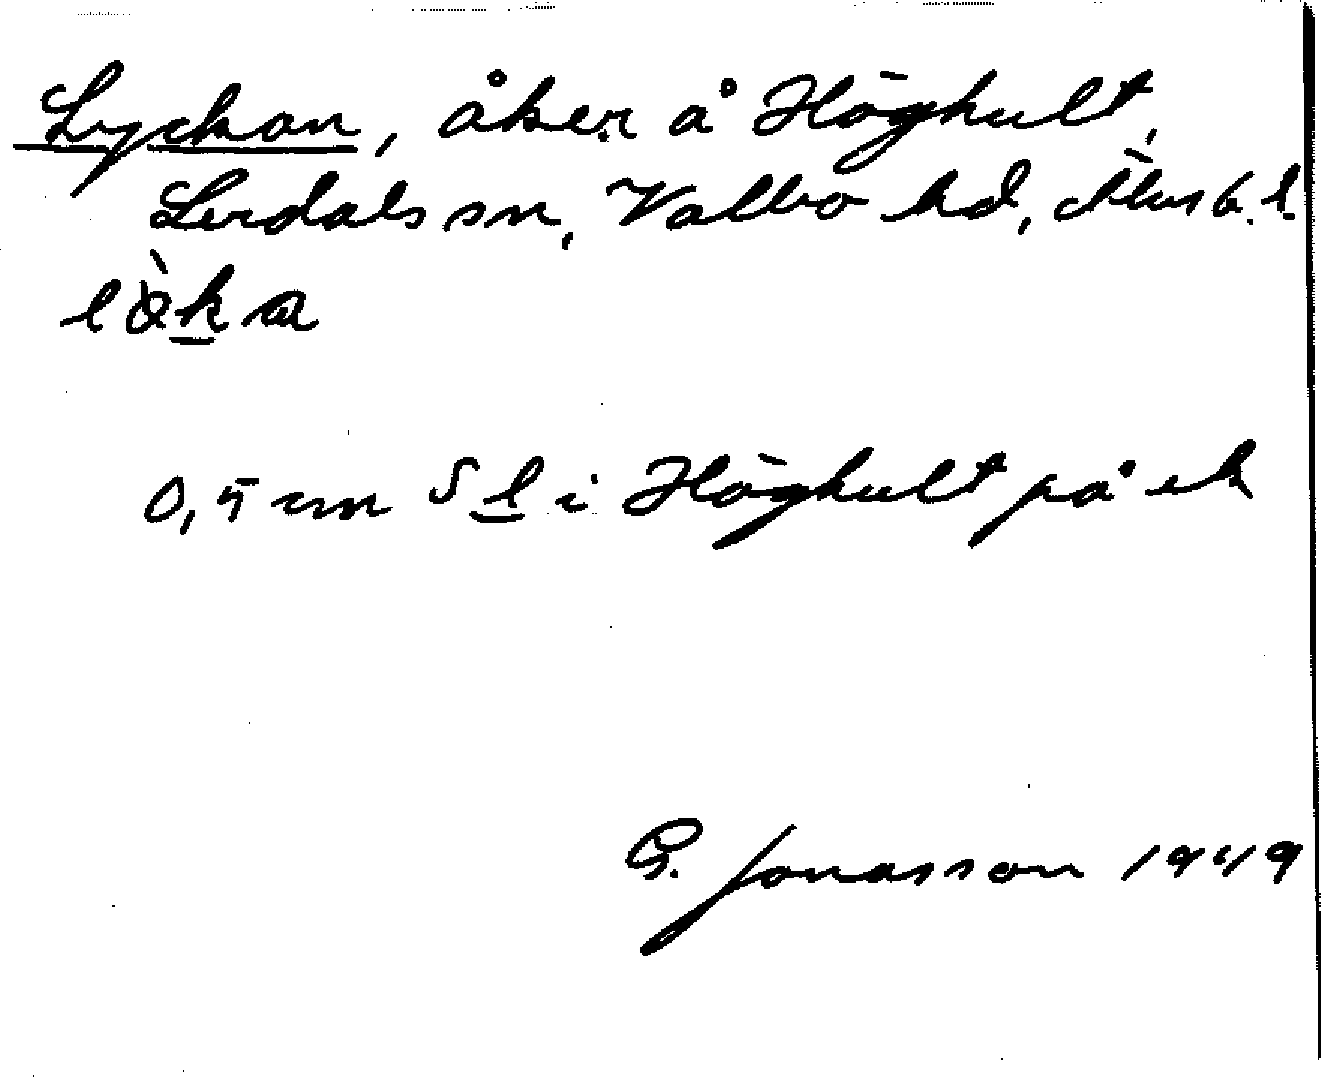 Lyckan, åker å Höghult,
Lerdals sn, Valbo hd, Älvsb. l.
0,5 cm S l i Höghult på ek
G. Jonasson 1949